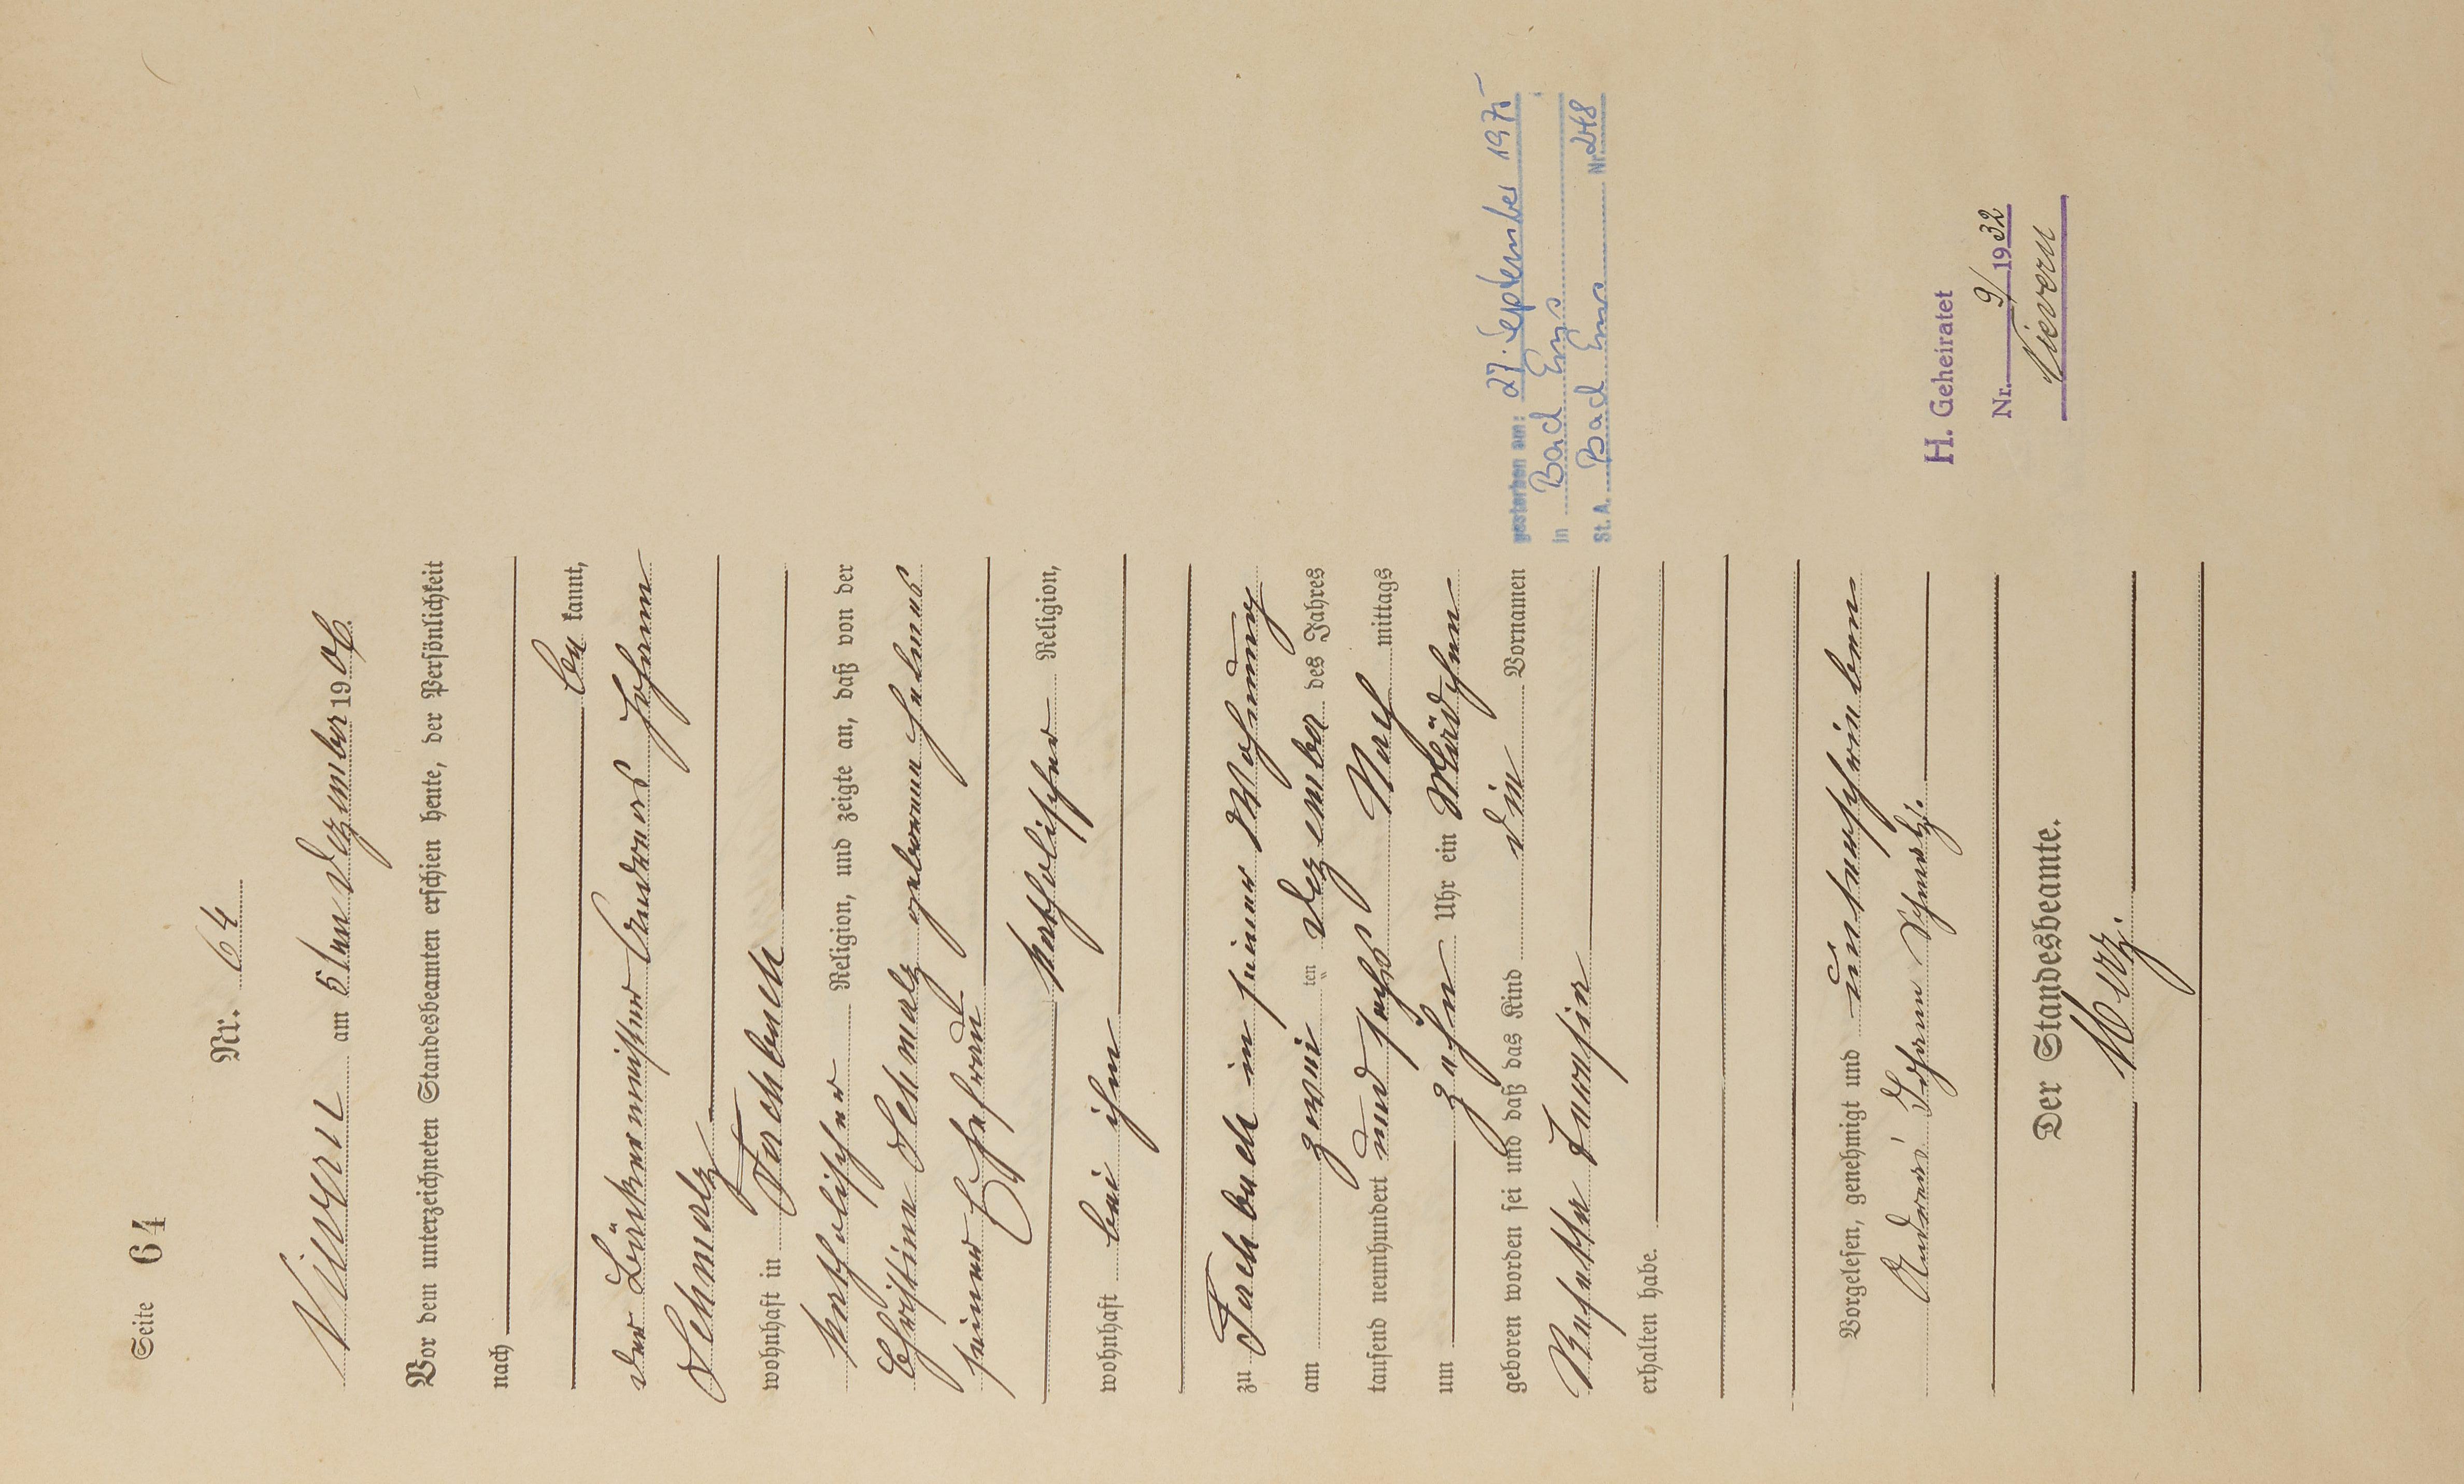 Seite 64
Nr. 64
Nievern am 5ten Dezember 1906.
Vor dem unterzeichneten Standesbeamten erschien heute, der Persönlichkeit
nach
be kannt,
der Bäckermeister Andreas Johann
Schmalz
wohnhaft in Fachbach
katholischer Religion, und zeigte an, daß von der
Christina Schmalz geborenen
seiner Ehefrau
katholischer Religion,
wohnhaft bei ihm
zu Fachbach in seiner Wohnung
am zwei ten Dezember des Jahres
tausend neunhundert und sechs Nach mittags
um zehn Uhr ein Mädchen
geboren worden sei und daß das Kind die Vornamen
Babette Luzia
erhalten habe.
Vorgelesen, genehmigt und unterschrieben
Andreas Johann Schmalz.
Der Standesbeamte.
gestorben am: 27. September 1975
in Bad Ems
St. A. Bad Ems Nr. 248
H. Geheiratet
Nr. 9/1932
Nievern